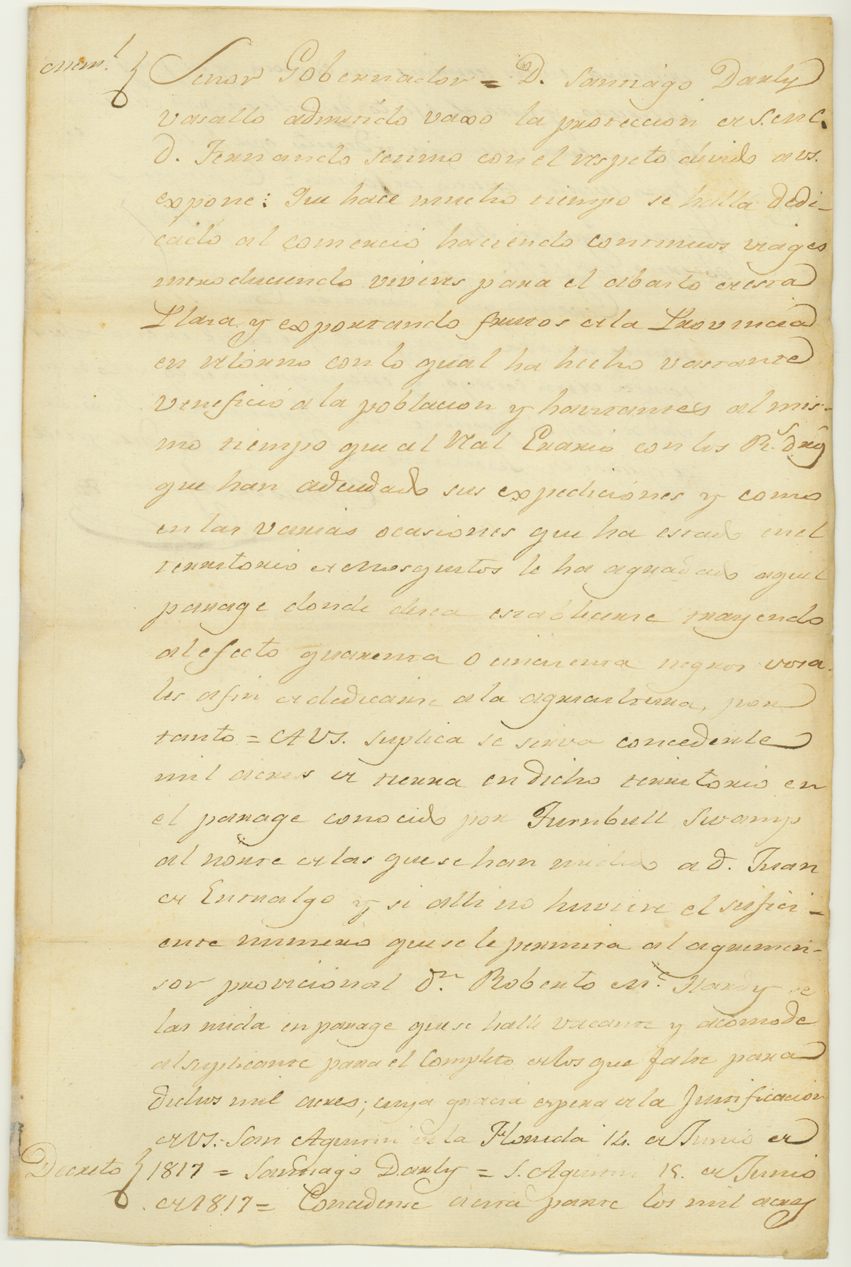 Mem.l
Señor Gobernador = D. Santiago Darly
vasallo admitido vaxo la proteccion de S. en l.
D. Fernando septimo con el respeto devido a vs.
expone: Que hace mucho tiempo se halla dedi-
cado al comercio haciendo continuos viages
introduciendo viveres para el abasto de esta
Plaza y exportando frutos de la Provincia
en retorno con lo qual ha hecho vastante
veneficio a la poblacion y havitantes al mis-
mo tiempo que al Real Erario con los R.s dros
que han adeudado sus expediciones y como
en las varias ocasiones que ha estado en el
territorio de Mosquitos le ha agradado aquel
parage donde desea establecerse trayendo
al efecto quarenta o cincuenta negros vosa-
les a fin de dedicarse a la agricultura, por
tanto = A VS. suplica se sirva concederle
mil acres de tierra en dicho territorio en
el parage conocido por Turnbull Swamp
al norte de las que se han medido a D. Juan
de Entralgo y si alli no huviere el sufici-
ente numero que se le permita al agrimen-
sor provicional Dn. Roberto Mc. Hardy se
las mida en parage que se halle vacante y acomode
al suplicante para el completo de los que falte para
dichos mil acres; cuya gracia espera de la Justificacion
de VS. San Agustin de la Florida 14. de Junio de
Decreto
1817 = Santiago Darly = S. Agustin 18. de Junio
de 1817 = Concedense a esta parte los mil acres